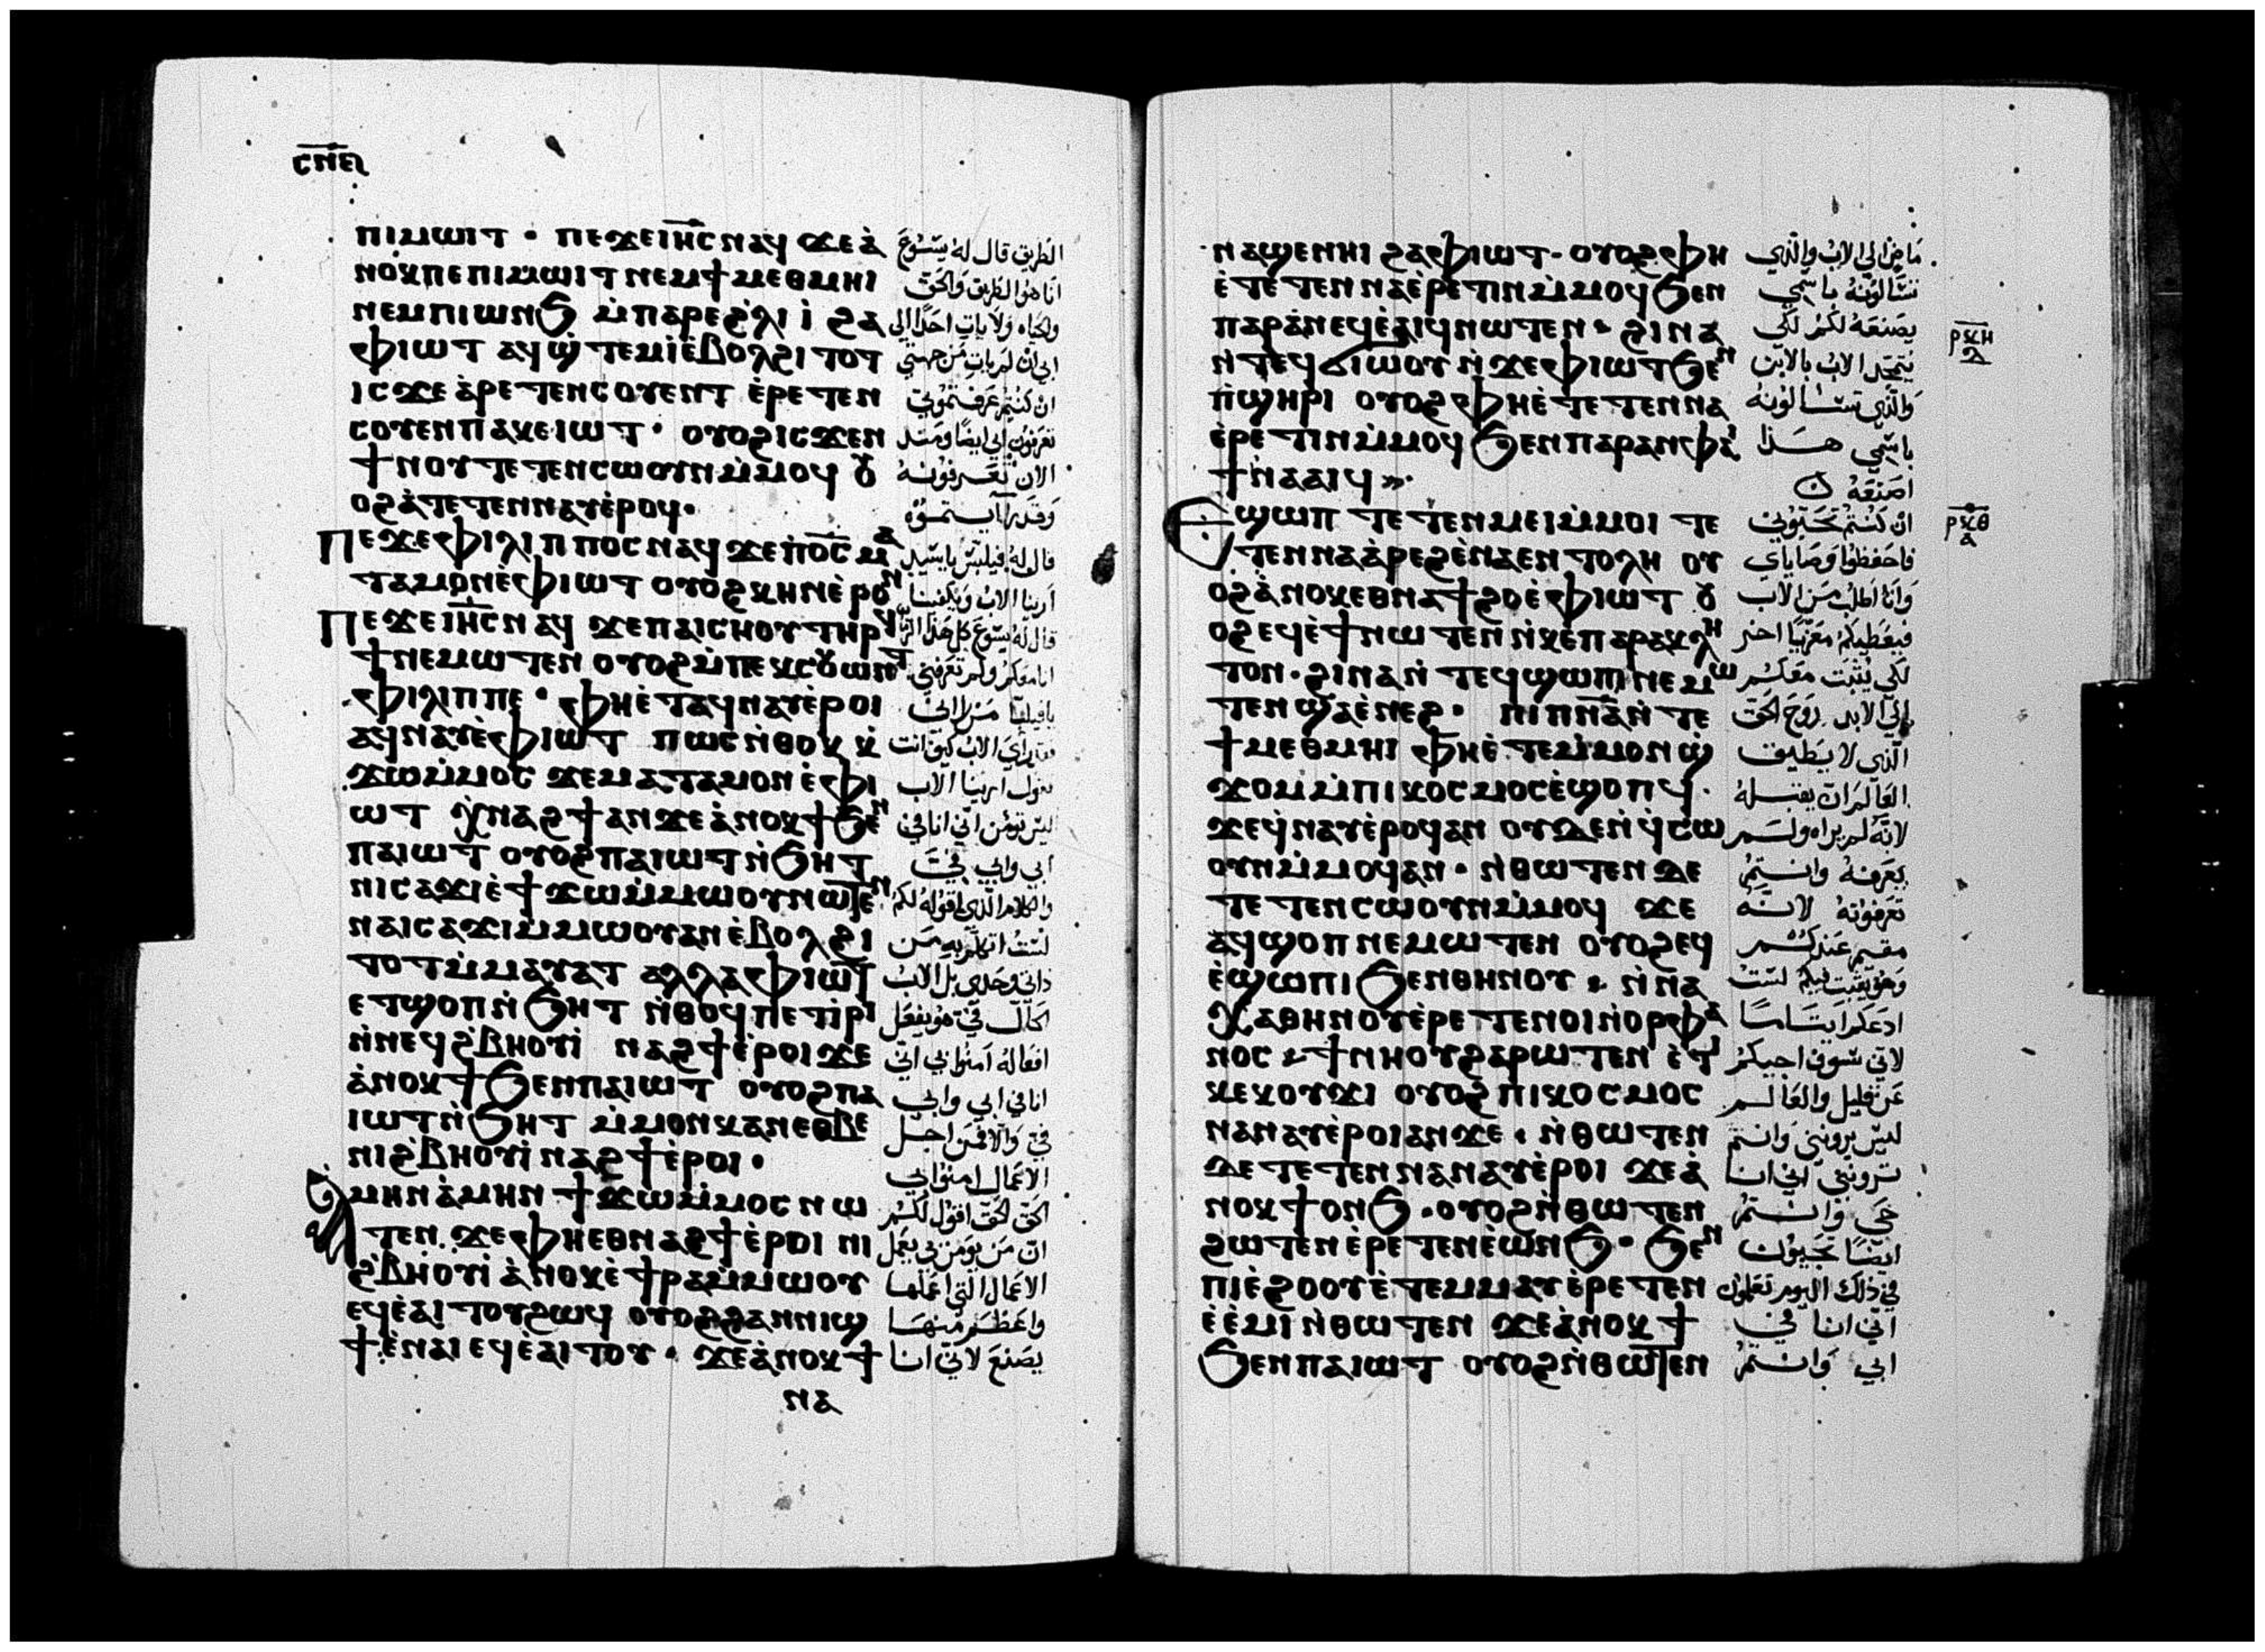 ⲥⲛⲉ
ⲡⲓⲙⲱⲓⲧ · ⲡⲉϫⲉ ⲓⲏ̅ⲥ̅ ⲛⲁϥ ϫⲉ ⲁ̀
ⲛⲟⲕ ⲡⲉ ⲡⲓⲙⲱⲓⲧ ⲛⲉⲙ ϯⲙⲉⲑⲙⲏⲓ
ⲛⲉⲙ ⲡⲓⲱⲛϧ ⲙ̀ⲡⲁⲣⲉ ϩ̀ⲗⲓ ⲓ̀ ϩⲁ
ⲫⲓⲱⲧ ⲁϥϣ̀ⲧⲉⲙⲓ̀ ⲉ̀ⲃⲟⲗϩⲓⲧⲟⲧ
ⲓⲥϫⲉ ⲁ̀ⲣⲉⲧⲉⲛⲥⲟⲩⲉⲛⲧ ⲉ̀ⲣⲉⲧⲉⲛ
ⲥⲟⲩⲉⲛ ⲡⲁⲕⲉⲓⲱⲧ · ⲟⲩⲟϩ ⲓⲥϫⲉⲛ
ϯⲛⲟⲩ ⲧⲉⲧⲉⲛⲥⲱⲟⲩⲛ ⲙ̀ⲙⲟϥ ⲟⲩ
ⲟϩ ⲁ̀ⲧⲉⲧⲉⲛⲛⲁⲩ ⲉ̀ⲣⲟϥ·
ⲡⲉϫⲉ ⲫⲓⲗⲓⲡⲡⲟⲥ ⲛⲁϥ ϫⲉ ⲡⲟ̅ⲥ̅ ⲙⲁ
ⲧⲁⲙⲟⲛ ⲉ̀ⲫⲓⲱⲧ ⲟⲩⲟϩ ⲕⲏⲛ ⲉ̀ⲣⲟⲛ
ⲡⲉϫⲉ ⲓⲏ̅ⲥ̅ ⲛⲁϥ ϫⲉ ⲡⲁⲓⲥⲏⲟⲩ ⲧⲏⲣϥ
ϯⲛⲉⲙⲱⲧⲉⲛ ⲟⲩⲟϩ ⲙ̀ⲡⲉⲕⲥⲟⲩⲱⲛⲧ
ⲫⲓⲗⲓⲡⲡⲉ · ⲫⲏⲉ̀ⲧⲁϥⲛⲁⲩ ⲉ̀ⲣⲟⲓ
ⲁϥⲛⲁⲩ ⲉ̀ⲫⲓⲱⲧ ⲡⲱⲥ ⲛ̀ⲑⲟⲕ ⲕ̀
ϫⲱ ⲙ̀ⲙⲟⲥ ϫⲉ ⲙⲁⲧⲁⲙⲟⲛ ⲉ̀ⲫⲓ
ⲱⲧ ⲭ̀ⲛⲁϩϯ ⲁⲛ ϫⲉ ⲁ̀ⲛⲟⲕ ϯϧⲉⲛ
ⲡⲁⲓⲱⲧ ⲟⲩⲟϩ ⲡⲁⲓⲱⲧ ⲛ̀ϧⲏⲧ
ⲛⲓⲥⲁϫⲓ ⲉ̀ϯϫⲱ ⲙ̀ⲙⲱⲟⲩ ⲛⲱⲧⲉⲛ
ⲛⲁⲓⲥⲁϫⲓ ⲙ̀ⲙⲱⲟⲩ ⲁⲛ ⲉ̀ⲃⲟⲗϩⲓ
ⲧⲟⲧ ⲙ̀ⲙⲁⲩⲁⲧ ⲁⲗⲗⲁ ⲫⲓⲱⲧ
ⲉⲧϣⲟⲡ ⲛ̀ϧⲏⲧ ⲛ̀ⲑⲟϥ ⲡⲉⲧⲓ̀ⲣⲓ
ⲛ̀ⲛⲉϥϩ̀ⲃⲏⲟⲩⲓ̀ ⲛⲁϩϯ ⲉ̀ⲣⲟⲓ ϫⲉ
ⲁ̀ⲛⲟⲕ ϯϧⲉⲛ ⲡⲁⲓⲱⲧ ⲟⲩⲟϩ ⲡⲁ
ⲓⲱⲧ ⲛ̀ϧⲏⲧ ⲙ̀ⲙⲟⲛ ⲕⲁⲛ ⲉⲑⲃⲉ
ⲛⲓϩ̀ⲃⲏⲟⲩⲓ̀ ⲛⲁϩϯ ⲉ̀ⲣⲟⲓ ·
ⲁ̀ⲙⲏⲛ ⲁ̀ⲙⲏⲛ ϯϫⲱ ⲙ̀ⲙⲟⲥ ⲛⲱ
ⲧⲉⲛ ϫⲉ ⲫⲏⲉⲑⲛⲁϩϯ ⲉ̀ⲣⲟⲓ ⲛⲓ
ϩ̀ⲃⲏⲟⲩⲓ̀ ⲁ̀ⲛⲟⲕ ⲉ̀ϯⲣⲁ ⲙ̀ⲙⲱⲟⲩ
ⲉϥⲉ̀ⲁⲓⲧⲟⲩ ϩⲱϥ ⲟⲩⲟϩ ϩⲁⲛⲛⲓϣ
ϯ ⲉ̀ⲛⲁⲓ ⲉϥⲉ̀ⲁⲓⲧⲟⲩ · ϫⲉ ⲁ̀ⲛⲟⲕ ϯ
ⲛⲁ
الطريق قال له يسوع
انا هو الطريق والحق
والحياه ولا يات احدا الى
ابي ان لم يات من جهتي
ان كنتم عرفتموني
تعرفون ابي ايضا ومنذ
الان تعرفونه
وقد رايتموه
قال له فيلبس يا سيد
ارينا الاب ويكفينا
قال له يسوع كل هذا الزمان
انا معكم ولم تعرفني
يا فيلبا من راني
فقد راي الاب كيف انت
تقول ارينا الاب
ليس تومن اني انا في
ابي وابي في
والكلام الذي اقوله لكم
لست اتكلم به من
ذاتي وحدي بل الاب
الحال في هو يفعل
افعاله امنوا بي اني
انا في ابي وابي
في والا فمن اجل
الاعمال امنوا بي
الحق الحق اقول لكم
ان من يومن بي يعمل
الاعمال التي اعملها
واعظم منها
يصنع لاني انا
ⲛⲁϣⲉⲛⲏⲓ ϩⲁ ⲫⲓⲱⲧ · ⲟⲩⲟϩ ⲫⲏ
ⲉ̀ⲧⲉⲧⲉⲛⲛⲁⲉ̀ⲣⲉⲧⲓⲛ ⲙ̀ⲙⲟϥ ϧⲉⲛ
ⲡⲁⲣⲁⲛ ⲉϥⲉ̀ⲁⲓϥ ⲛⲱⲧⲉⲛ · ϩⲓⲛⲁ
ⲛ̀ⲧⲉϥϭⲓⲱⲟⲩ ⲛ̀ϫⲉ ⲫⲓⲱⲧ ϧⲉⲛ
ⲡ̀ϣⲏⲣⲓ ⲟⲩⲟϩ ⲫⲏⲉ̀ⲧⲉⲧⲉⲛⲛⲁ
ⲉ̀ⲣⲉⲧⲓⲛ ⲙ̀ⲙⲟϥ ϧⲉⲛ ⲡⲁⲣⲁⲛ ⲫⲁⲓ
ϯⲛⲁⲁⲓϥ
ⲉϣⲱⲡ ⲧⲉⲧⲉⲛⲙⲉⲓ ⲙ̀ⲙⲟⲓ ⲧⲉ
ⲧⲉⲛⲛⲁⲁ̀ⲣⲉϩ ⲉ̀ⲛⲁⲉⲛⲧⲟⲗⲏ ⲟⲩ
ⲟϩ ⲁ̀ⲛⲟⲕ ⲉⲑⲛⲁϯϩⲟ ⲉ̀ⲫⲓⲱⲧ ⲟⲩ
ⲟϩ ⲉϥⲉ̀ϯ ⲛⲱⲧⲉⲛ ⲛ̀ⲕⲉⲡⲁⲣⲁⲕⲗⲏ
ⲧⲟⲛ · ϩⲓⲛⲁ ⲛ̀ⲧⲉϥϣⲱⲡⲓ ⲛⲉⲙⲱ
ⲧⲉⲛ ϣⲁⲉ̀ⲛⲉϩ · ⲡⲓⲡⲛ̅ⲁ̅ ⲛ̀ⲧⲉ
ϯⲙⲉⲑⲙⲏⲓ ⲫⲏⲉ̀ⲧⲉⲙ̀ⲙⲟⲛ ϣ̀
ϫⲟⲙ ⲙ̀ⲡⲓⲕⲟⲥⲙⲟⲥ ⲉ̀ϣⲟⲡϥ ·
ϫⲉ ϥ̀ⲛⲁⲩ ⲉ̀ⲣⲟϥ ⲁⲛ ⲟⲩⲇⲉ ⲛ̀ϥ̀ⲥⲱ
ⲟⲩⲛ ⲙ̀ⲙⲟϥ ⲁⲛ · ⲛ̀ⲑⲱⲧⲉⲛ ⲇⲉ
ⲧⲉⲧⲉⲛⲥⲱⲟⲩⲛ ⲙ̀ⲙⲟϥ ϫⲉ
ⲁϥϣⲟⲡ ⲛⲉⲙⲱⲧⲉⲛ ⲟⲩⲟϩ ⲉϥ
ⲉ̀ϣⲱⲡⲓ ϧⲉⲛⲑⲏⲛⲟⲩ · ⲛ̀ⲛⲁ
ⲭⲁⲑⲏⲛⲟⲩ ⲉ̀ⲣⲉⲧⲉⲛⲟⲓ ⲛ̀ⲟⲣⲫⲁ
ⲛⲟⲥ · ϯⲛⲏⲟⲩ ϩⲁⲣⲱⲧⲉⲛ ⲉ̀ⲧⲓ
ⲕⲉⲕⲟⲩϫⲓ ⲟⲩⲟϩ ⲡⲓⲕⲟⲥⲙⲟⲥ
ⲛⲁⲛⲁⲩ ⲉ̀ⲣⲟⲓ ⲁⲛ ϫⲉ · ⲛ̀ⲑⲱⲧⲉⲛ
ⲇⲉ ⲧⲉⲧⲉⲛⲛⲁⲛⲁⲩ ⲉ̀ⲣⲟⲓ ϫⲉ ⲁ̀
ⲛⲟⲕ ϯⲟⲛϧ · ⲟⲩⲟϩ ⲛ̀ⲑⲱⲧⲉⲛ
ϩⲱⲧⲉⲛ ⲉ̀ⲣⲉⲧⲉⲛⲉ̀ⲱⲛϧ · ϧⲉⲛ
ⲡⲓⲉ̀ϩⲟⲟⲩ ⲉ̀ⲧⲉⲙⲙⲁⲩ ⲉ̀ⲣⲉⲧⲉⲛ
ⲉ̀ⲉ̀ⲙⲓ ⲛ̀ⲑⲱⲧⲉⲛ ϫⲉ ⲁ̀ⲛⲟⲕ ϯ
ϧⲉⲛ ⲡⲁⲓⲱⲧ ⲟⲩⲟϩ ⲛ̀ⲑⲱⲧⲉⲛ
ماض الى الاب والذي
تسالونه باسمي
يصنعه لكم لكي
يتمجد الاب بالابن
والذي تسالونه
باسمي هذا
اصنعه
ان كنتم تحبوني
فاحفظوا وصاياي
وانا اطلب من الاب
فيعطيكم معزيا اخر
لكي يثبت معكم
الى الابد روح الحق
الذي لا يطيق
العالم ان يقبله
لانه لم يراه ولم
يعرفه وانتم
تعرفونه لانه
مقيم عندكم
وهو يثبت فيكم لست
ادعكم ايتاما
لاني سوف اجيكم
عن قليل والعالم
ليس يرونني وانتم
ترونني اني انا
حي وانتم
ايضا تحيون
في ذلك اليوم تعلمون
اني انا في
ابي وانتم
ⲣⲕⲏ
ⲇ
ⲣⲕⲑ
ⲁ